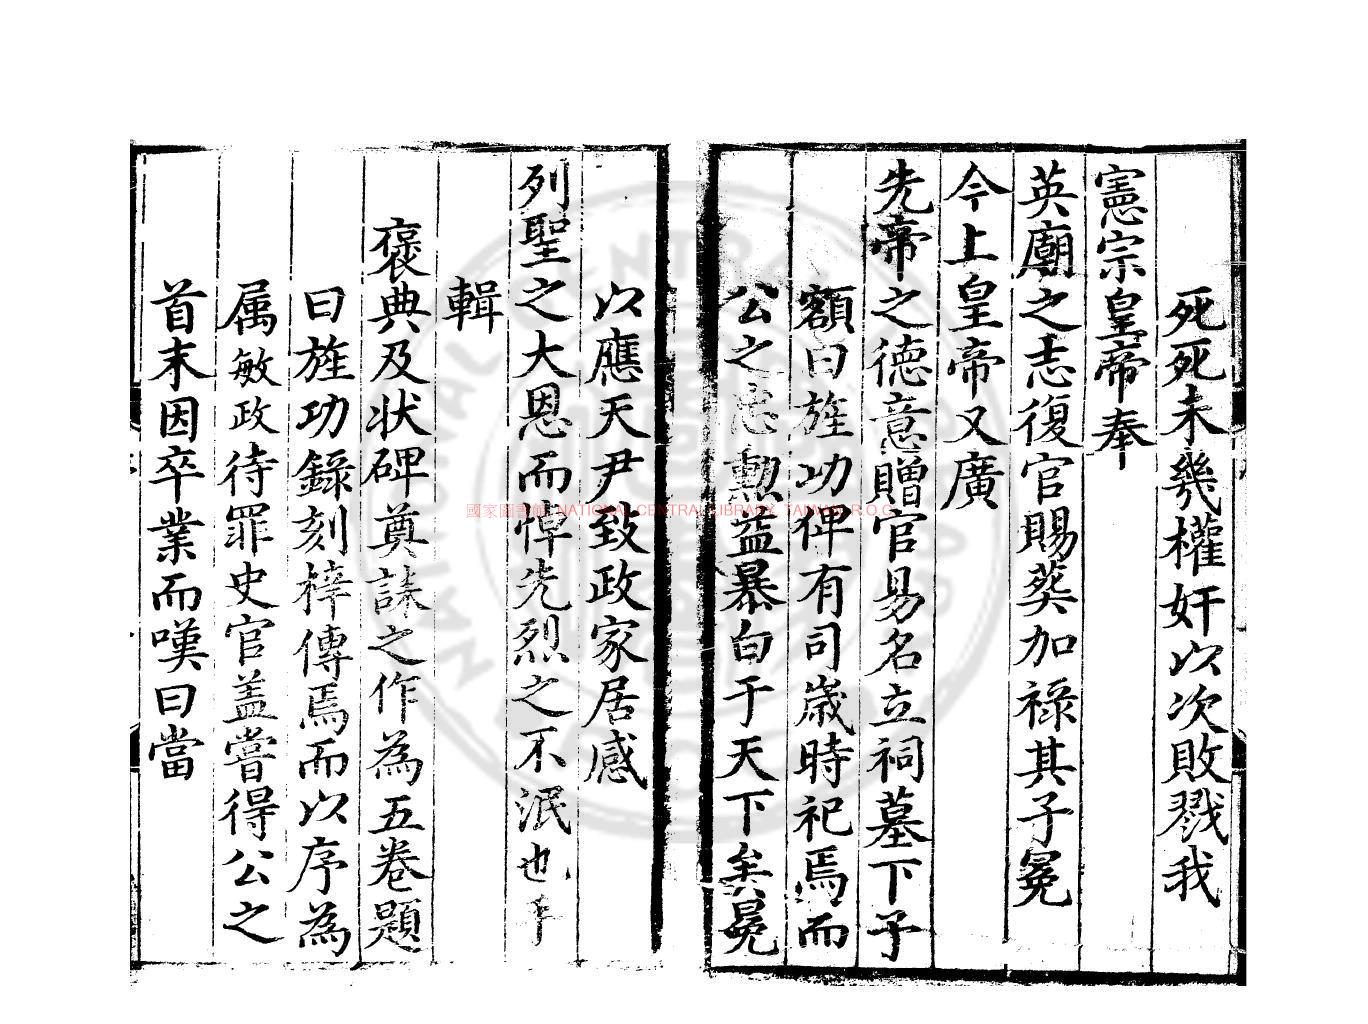 死死未幾權奸以次敗戮我
憲宗皇帝奉
英廟之志復官賜葬加祿其子冕
今上皇帝又廣
先帝之德意贈官易名立祠墓下予
額曰旌功俾有司歲時祀焉而
公之忠勲益暴白于天下矣冕
以應天尹致政家居感
列聖之大恩而悼先烈之不泯也手
輯
褒典及状碑奠誄之作為五卷題
曰旌功錄刻梓傳焉而以序為
属敏政待罪史官盖嘗得公之
首末因卒業而嘆曰當
國家圖書館 NATIONAL CENTRAL LIBRARY, TAIWAN, R.O.C.